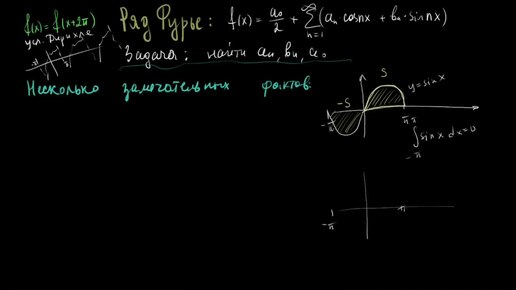 f(x) = f(x+2π)
усл. Дирихле
Ряд Фурье: f(x) = a₀/2 + ∑_{n=1}^{+∞} (aₙ cosnx + bₙ·sinnx)
Задача: найти aₙ, bₙ, a₀
Несколько замечательных фактов:
S
y = sinx
-S
-π
π
∫_{-π}^{π} sinx dx = 0
-π
π